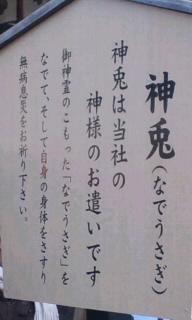 神兎(なでうさぎ)
神兎は当社の
神様のお遣いです
御神霊のこもった「なでうさぎ」を
なでて、そして自身の身体をさすり
無病息災をお祈り下さい。